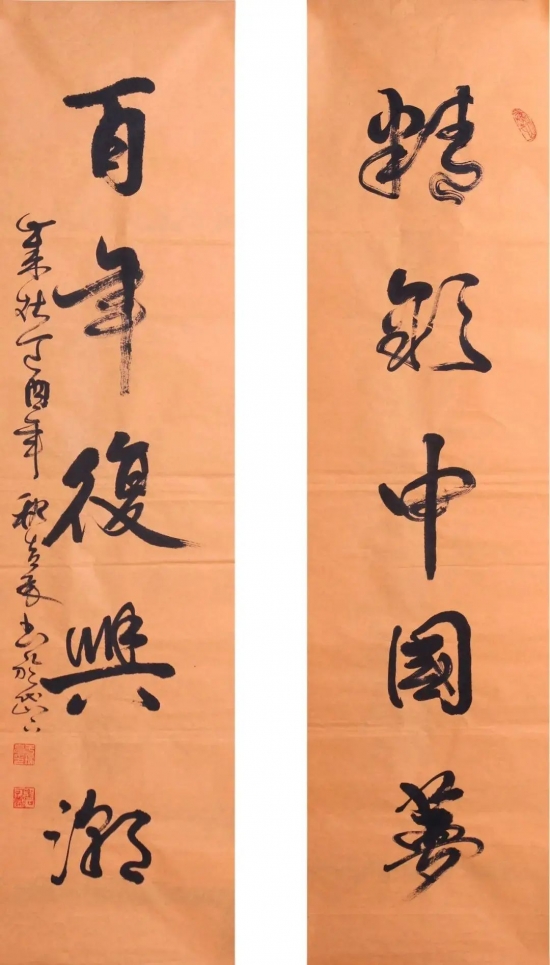 精彩中國夢
百年復興潮
丁酉年秋 書於岱下